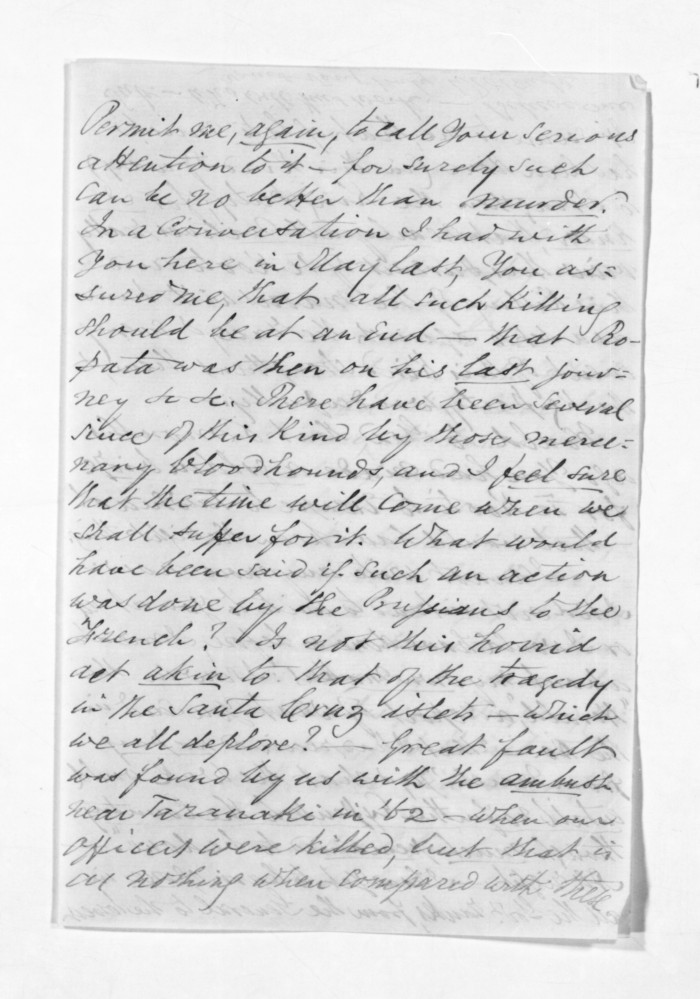 Permit me, again, to call Your serious
attention to it – for surely such
can be no better than murder.
In a conversation I had with
You here in May last, You as=
sured me, that all such Killing
should be at an End – that Ro-
pata was then on his last jour=
ney &c &c. There have been several
since of this Kind by those merce=
nary bloodhounds, and I feel sure
that the time will come when we
shall suffer for it. What would
have been said if such an action
was done by the Prussians to the
French? Is not this horrid
act akin to that of the tragedy
in the Santa Cruz islets – which
we all deplore? — Great fault
was found by us with the ambush
near Taranaki in '62 – when our
officers were killed, but that is
as nothing when compared with these